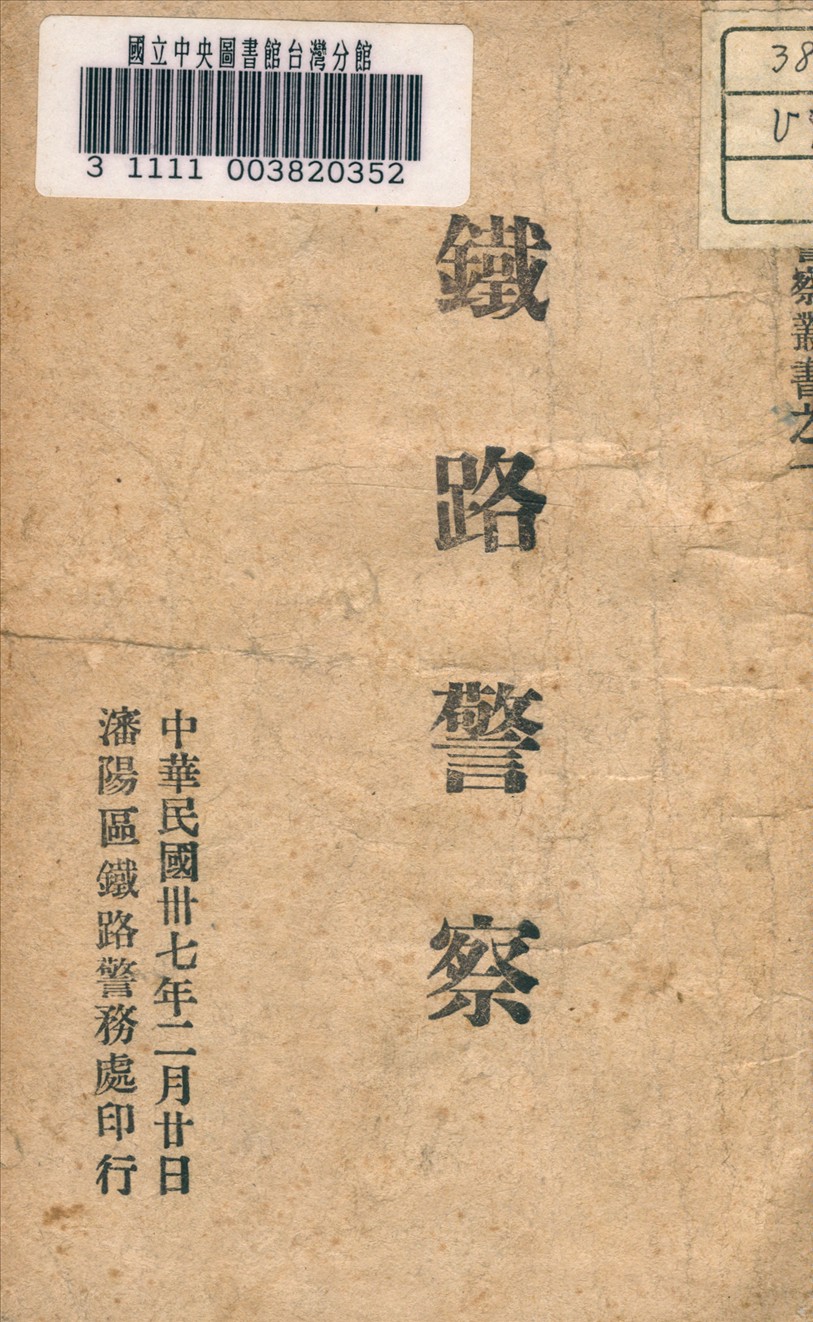 國立中央圖書館台灣分館
3 1111 003820352
38
察叢書之一
鐵路警察
中華民國卅七年二月廿日
瀋陽區鐵路警務處印行